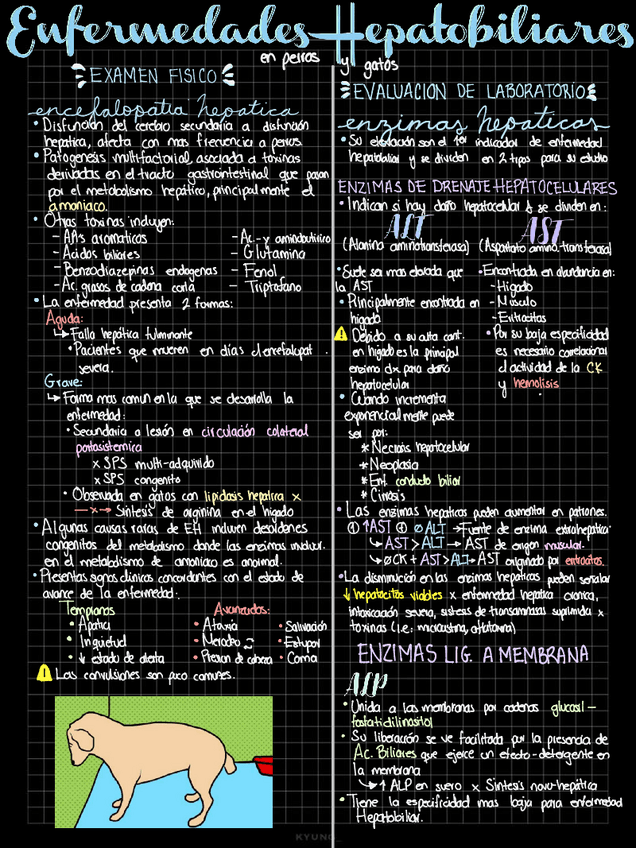 Enfermedades Hepatobiliares
en perros y gatos
EXAMEN FISICO
encefalopatia hepatica
• Disfunción del cerebro secundaria a disfunción
hepatica, afecta con mas frecuencia a perros.
• Patogenesis multifactorial, asociada a toxinas
derivadas en el tracto gastrointestinal que pasan
por el metabolismo hepático, principalmente el
amoniaco.
• Otras toxinas incluyen:
- AAs aromaticos
- Ácidos biliares
- Benzodiazepinas endogenas
- Ac. grasos de cadena corta
- Ac. y aminobutirico
- Glutamina
- Fenol
- Triptofano
• La enfermedad presenta 2 formas:
Aguda:
↳ Falla hepática fulminante
• Pacientes que mueren en días c/encefalopat.
severa.
Grave:
↳ Forma mas comun en la que se desarrolla la
enfermedad:
• Secundaria a lesión en circulación colateral
portosistemica
x SPS multi-adquirido
x SPS congenito
• Observada en gatos con lipidosis hepatica x
—x→ Sintesis de arginina en el higado
• Algunas causas raras de EH incluyen desordenes
congenitos del metabolismo donde las enzimas involucr.
en el metabolismo de amoniaco es anormal.
• Presentas signos clinicos concordantes con el estado de
avance de la enfermedad:
Tempranos
• Apatia
• Inquietud
• ↓ estado de alerta
Avanzados:
• Ataxia
• Presion de cabeza
• Salivación
• Estupor
• Coma
Las convulsiones son poco comunes.
EVALUACION DE LABORATORIO
enzimas hepaticas
• Su elevación son el 1er indicador de enfermedad
hepatobiliar y se dividen en 2 tipos para su estudio
ENZIMAS DE DRENAJE HEPATOCELULARES
• Indican si hay daño hepatocelular & se dividen en:
ALT
(Alanina aminotransferasa)
• Suele ser mas elevada que
la AST
• Principalmente encontrada en
higado
Debido a su alta cant.
en higado es la principal
enzima dx para daño
hepatocelular
• Cuando incrementa
exponencialmente puede
ser por:
* Necrosis hepatocelular
* Neoplasia
* Enf. conducto biliar
* Cirrosis
AST
(Aspartato amino transferasa)
• Encontrada en abundancia en:
- Higado
- Musculo
- Eritrocitos
• Por su baja especificidad
es necesario correlacionar
c/ actividad de la CK
y hemolisis
• Las enzimas hepaticas pueden aumentar en patrones.
① ↑AST ① ∅ ALT → Fuente de enzima extrahepatica
↳ AST > ALT → AST de origen muscular.
↳ ∅CK + AST > ALT → AST originado por eritrocitos.
• La disminución en las enzimas hepaticas pueden señalar
↓ hepatocitos viables x enfermedad hepatica cronica,
intoxicación severa, sintesis de transaminasas suprimida x
toxinas (i.e: microcistina, aflatoxina)
ENZIMAS LIG. A MEMBRANA
ALP
• Unida a las membranas por cadenas glucosil-
fosfatidilinositol
• Su liberación se ve facilitada por la presencia de
Ac. Biliares que ejerce un efecto-detergente en
la membrana
↳ ↑ ALP en suero x Sintesis novo-hepática
• Tiene la especificidad mas baja para enfermedad
Hepatobiliar.
KYUNG_